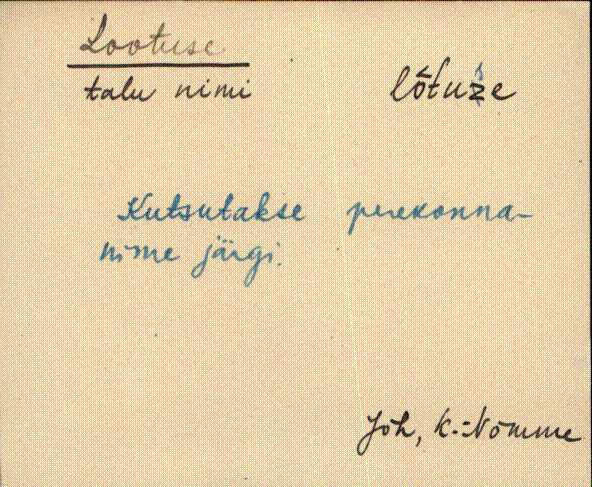 Lootuse
talu nimi lōtuse
Kutsutakse perekonna-
nime järgi.
Jõh, K.-Nõmme